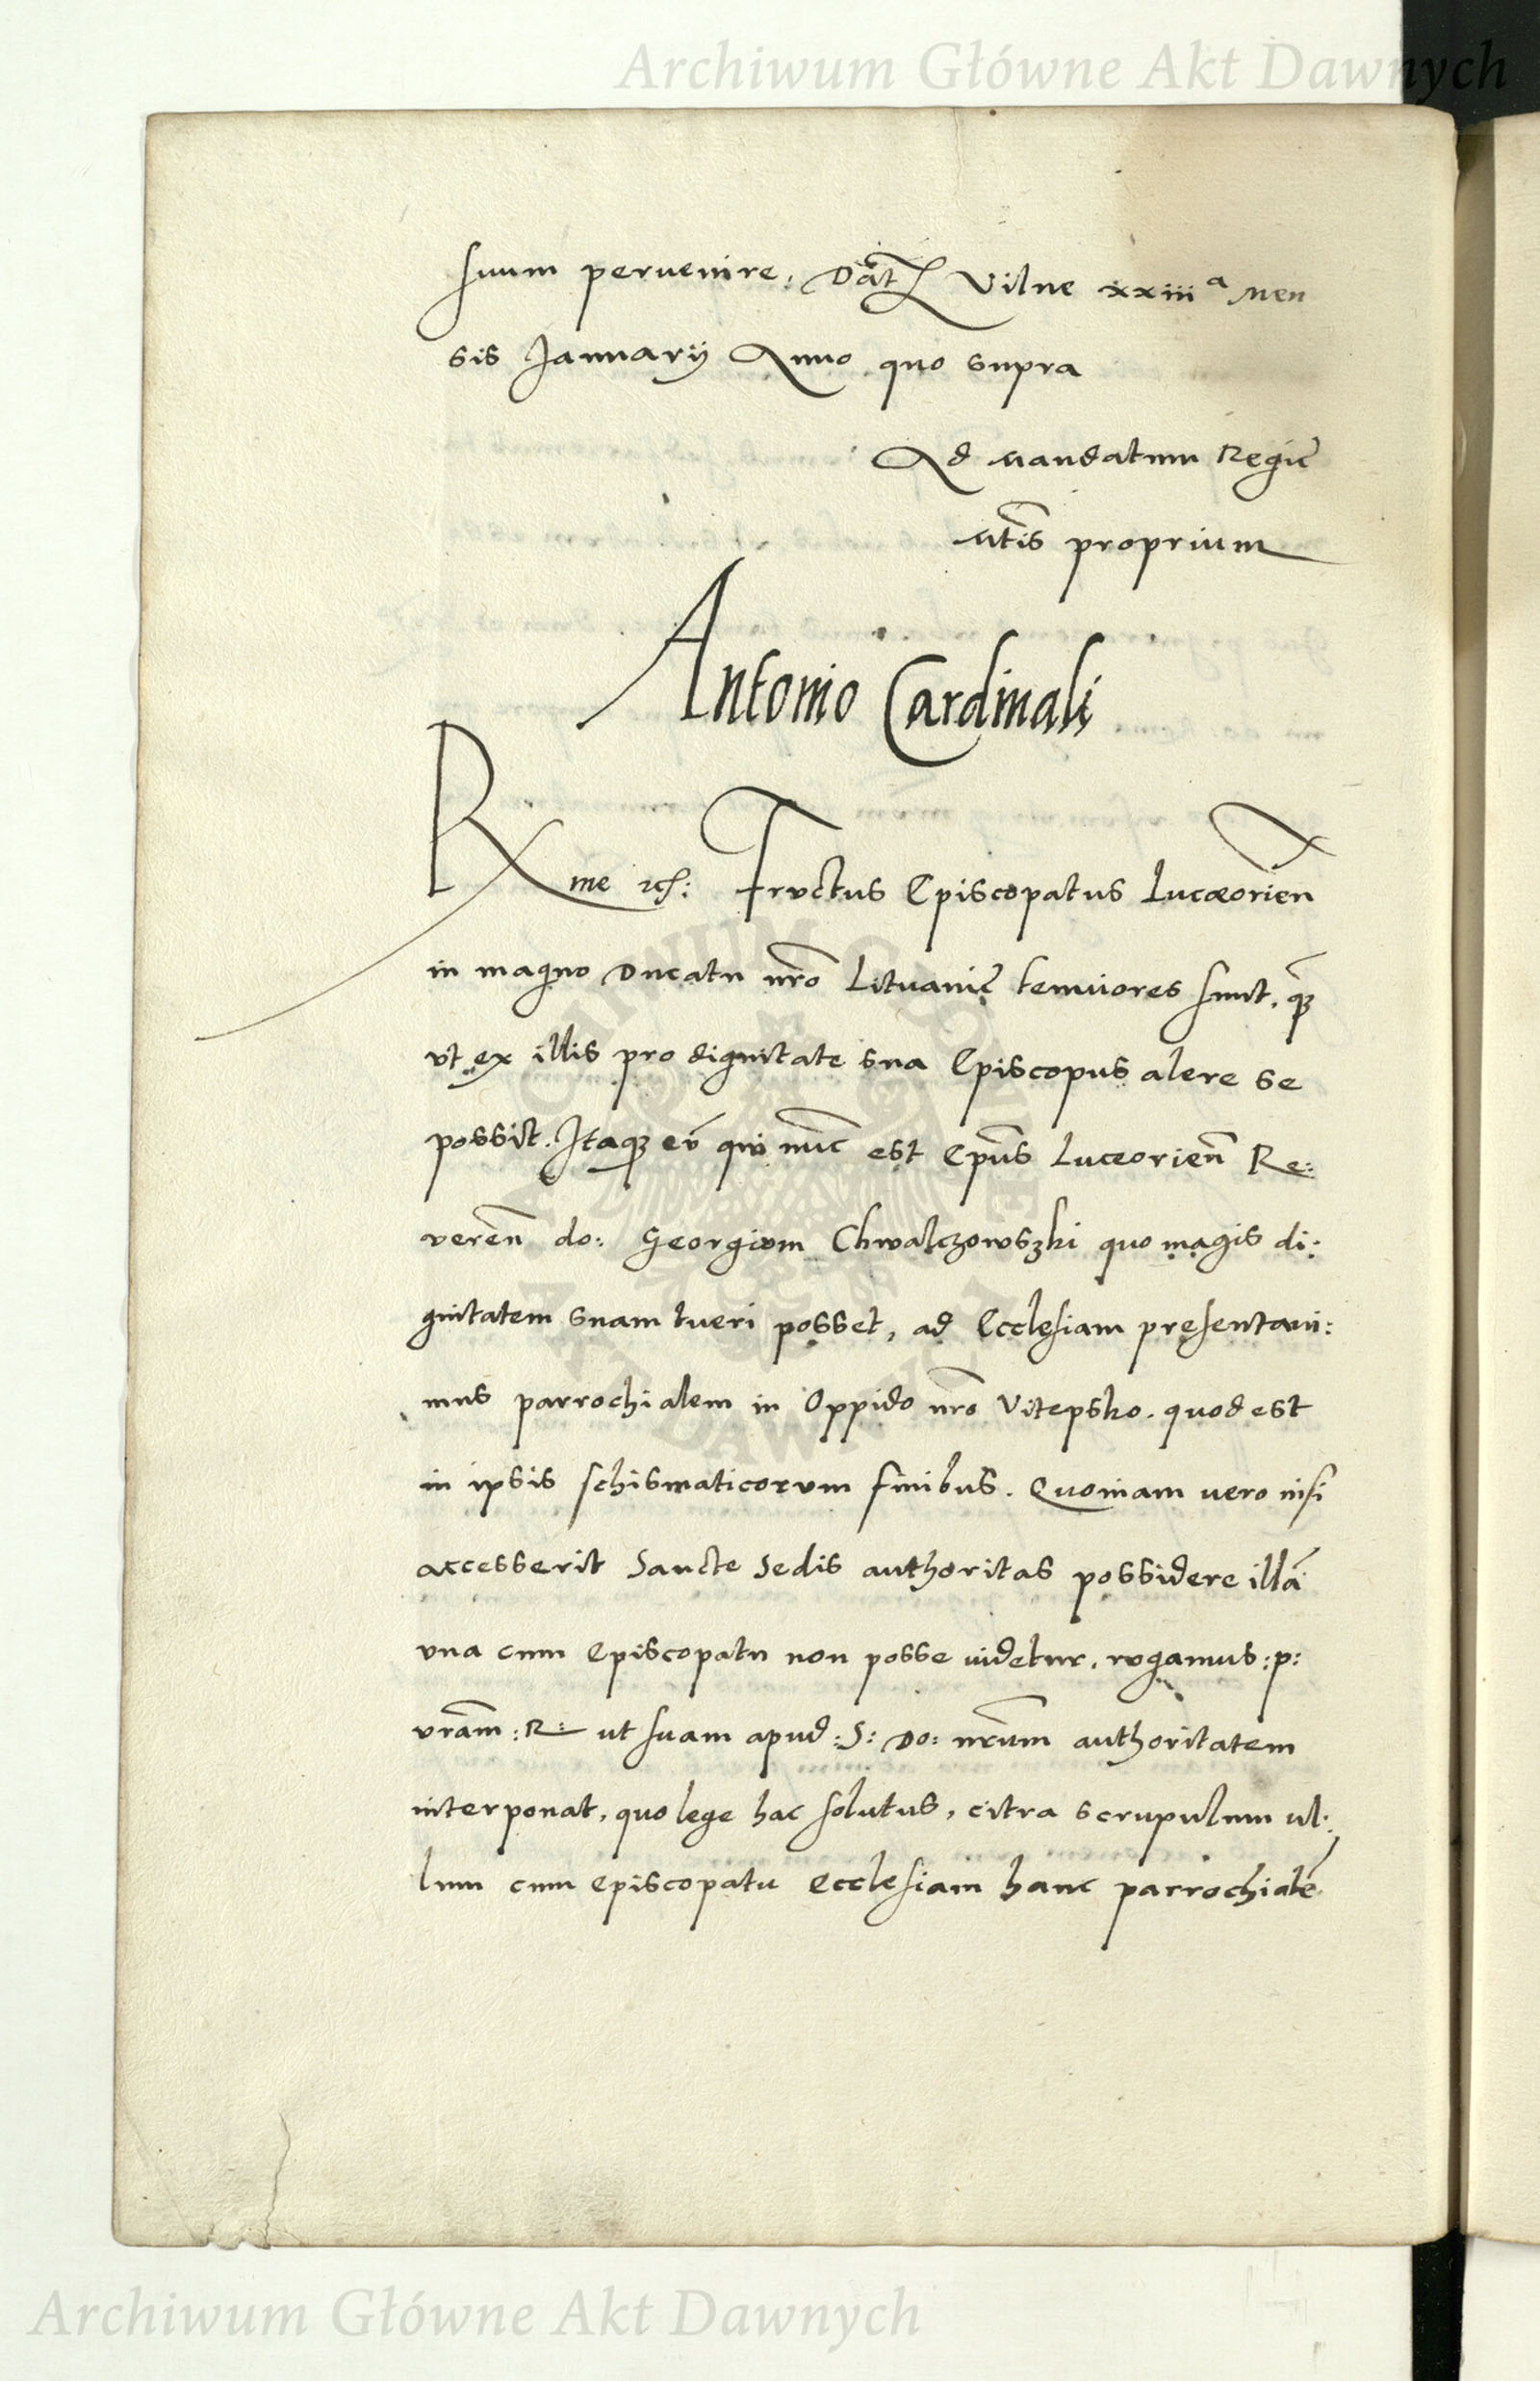 Archiwum Główne Akt Dawnych
suum pervenire: Dat Vilne xxiiiª Men
sis Ianuarij Anno quo supra
Ad mandatum Regie
Mtis proprium
Antonio Cardinali
Rme etc: Fructus Episcopatus Lucæorien
in magno Ducatu nro Lituanię tenuiores sunt, q̃
vt ex illis pro dignitate sua Episcopus alere se
possit. Itaq; eũ qui nũc est Epũs Luceorieñ Re:
vereñ do: Georgium Chwalczowszki quo magis di:
gnitatem suam tueri posset, ad Ecclesiam presentaui:
mus parrochialem in Oppido nro Vitepsko. quod est
in ipsis schismaticorum finibus. Quoniam vero nisi
accesserit Sancte Sedis authoritas possidere illã
vna cum Episcopatu non posse uidetur, rogamus :p:
vram̃ :R: ut suam apud :S: Do: nrum̃ authoritatem
interponat, quo lege hac solutus, citra scrupulum ul:
lum cum Episcopatu Ecclesiam hanc parrochialẽ
ARCHIWUM GŁÓWNE
AKT DAWNYCH
Archiwum Główne Akt Dawnych